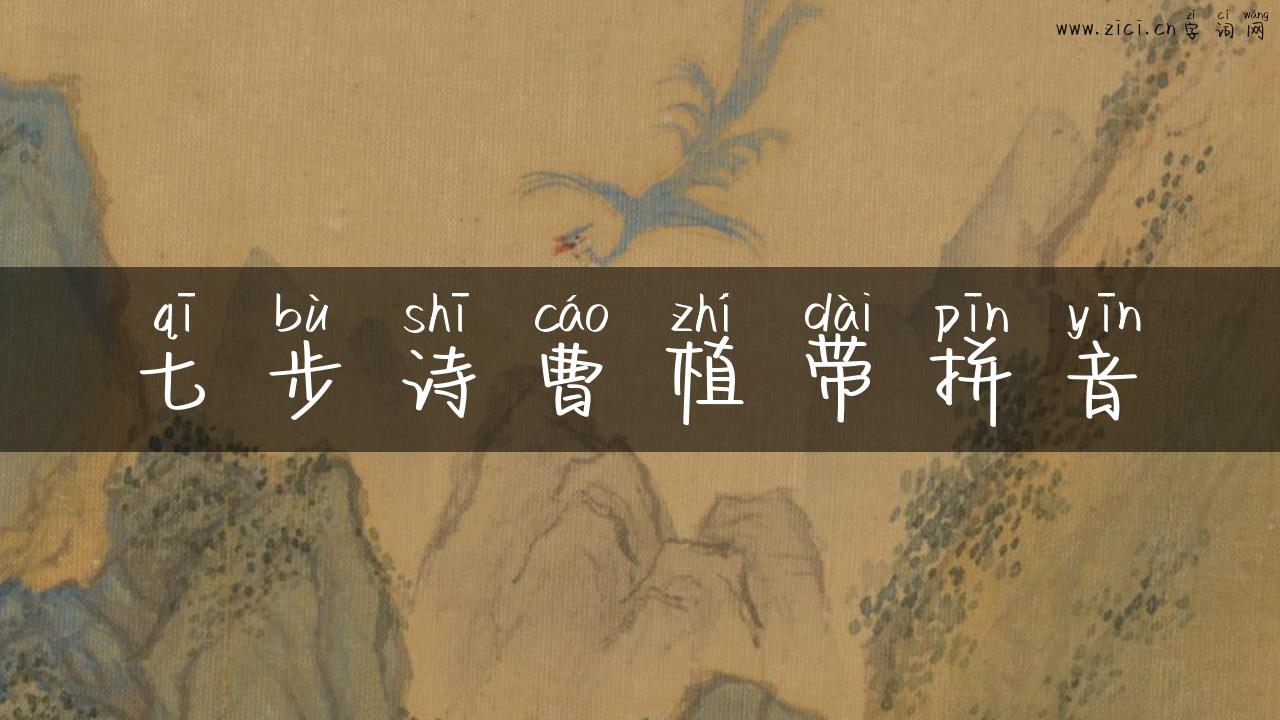 zì cí wǎng
www.zici.cn字词网
qī bù shī cáo zhí dài pīn yīn
七步诗曹植带拼音